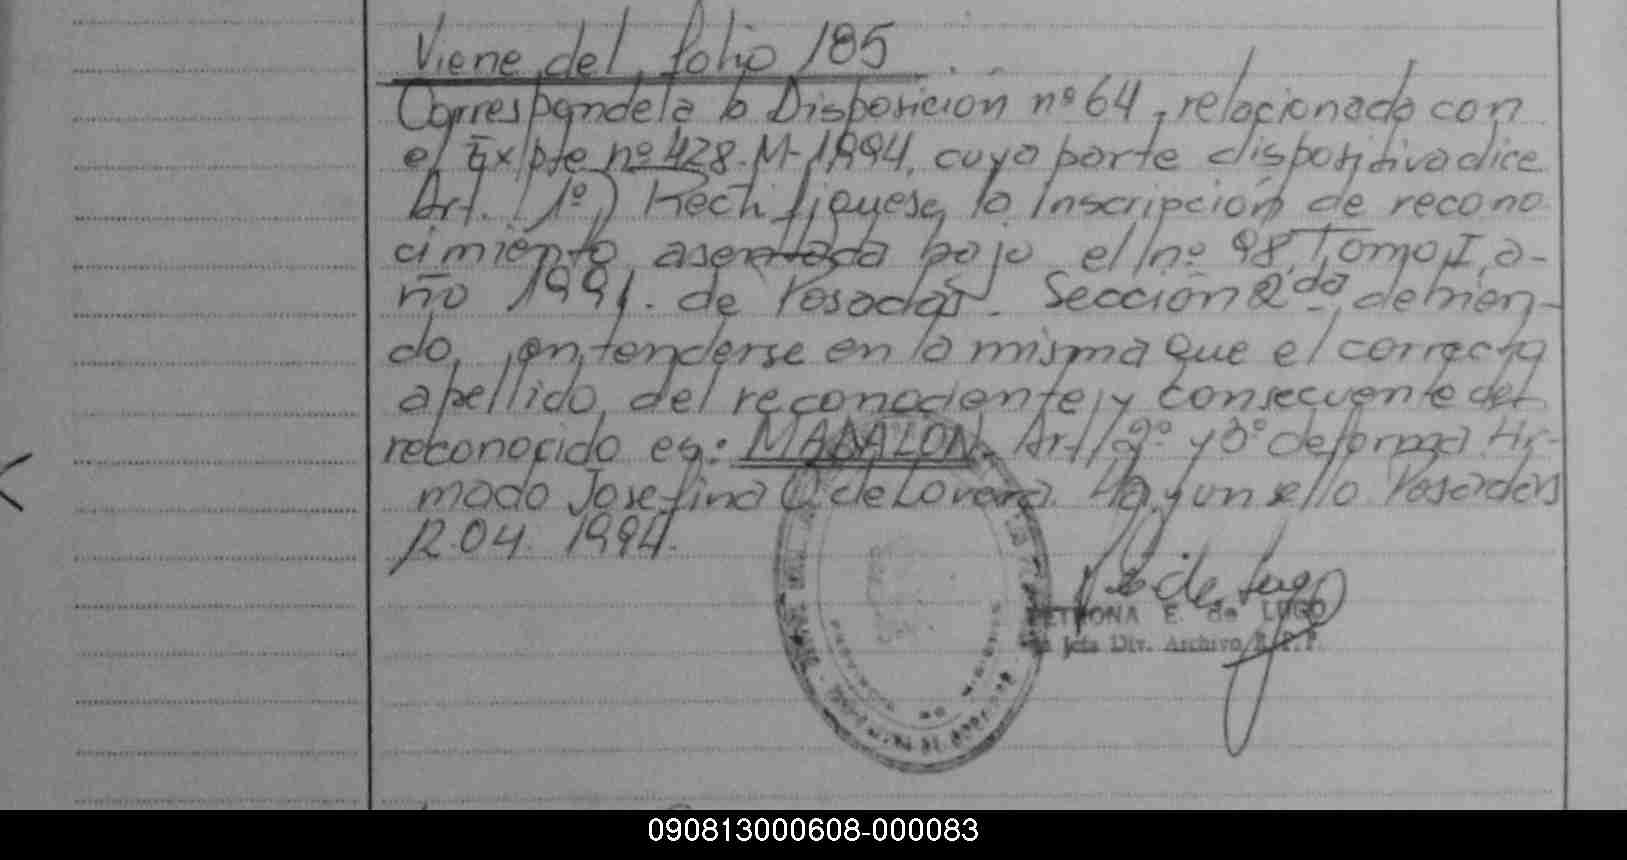 Viene del folio 185
Corresponde a la Disposición nº 64, relacionada con
el Expte nº 428-M-1994, cuya parte dispositiva dice
Art. 1º) Rectifíquese, la Inscripción de recono
cimiento asentada bajo el nº 98, Tomo I, a-
ño 1991. de Posadas. Sección 2da debien-
do, entenderse en la misma que el correcto
apellido, del reconociente, y consecuente del
reconocido es: Art/2º y 3º de forma. Fir-
mado Josefina de Lovera. Hay un sello Posadas
12.04.1994.
PETRONA E. de LUGO
Jefa Div. Archivo R.P.P.
090813000608-000083